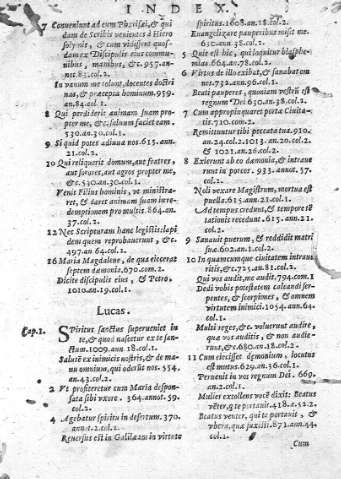 INDEX.
7 Conuenerunt ad eum Pharisæi, & qui
dam de Scribis venientes à Hiero
solymis, & cum vidissent quos-
dam ex Discipulis eius commu-
nibus, manibus, &c. 957. an-
not. 81. col. 2.
In vanum me colunt, docentes doctri
nas, & præcepta hominum. 959.
an. 84. col. 1.
8 Qui perdiderit animam suam prop-
ter me, &c. saluam faciet eam.
530. an. 30. col. 1.
9 Si quid potes adiuua nos. 615. ann.
21. col. 2.
10 Qui reliquerit domum, aut fratres,
aut sorores, aut agros propter me,
&c. 530. an. 30. col. 1.
Venit Filius hominis, vt ministra-
ret, & daret animam suam in re-
demptionem pro multis. 864. an.
37. col. 2.
12 Nec Scripturam hanc legistis: lapi
dem quem reprobauerunt, &c.
497. an. 64. col. 1.
16 Maria Magdalene, de qua eiecerat
septem dæmonia. 670. com. 2.
Dicite discipulis eius, & Petro.
1010. an. 19. col. 1.
Lucas.
Cap. 1. Spiritus sanctus superueniet in
te, & quod nascetur ex te san-
ctum. 1009. ann. 18. col. 1.
Salutē ex inimicis nostris, & de ma
nu omnium, qui oderūt nos. 554.
an. 43. col. 2.
2 Vt profiteretur cum Maria despon-
sata sibi vxore. 364. annot. 59.
col. 2.
4 Agebatur spiritu in desertum. 370.
anno. 2. col. 1.
Reuersus est in Galilæam in virtute
spiritus. 1608. an. 18. col. 2.
Euangelizare pauperibus misit me.
630. ann. 38. col. 1.
5 Quis est hic, qui loquitur blasphe-
mias. 664. an. 78. col. 2.
6 Virtus de illo exibat, & sanabat om
nes. 732. ann. 96. col. 1.
Beati pauperes, quoniam vestrū est
regnum Dei. 630. an. 38. col. 2.
7 Cum appropinquaret portæ Ciuita-
tis. 710. com. 2.
Remittuntur tibi peccata tua. 910.
an. 24. col. 2. 1013. an. 20. col. 2.
& 1021. an. 26. col. 2.
8 Exierunt ab eo dæmonia, & intraue
runt in porcos. 933. annot. 57.
col. 2.
Noli vexare Magistrum, mortua est
puella. 615. ann. 21. col. 1.
Ad tempus credunt, & tempore tē
tationis recedunt. 615. ann. 21.
col. 2.
9 Sanauit puerum, & reddidit patri
suo. 602. an. 1. col. 2.
10 In quamcunque ciuitatem intraue-
ritis, &c. 725. an. 81. col. 2.
Qui vos audit, me audit. 794. com. 1
Dedi vobis potestatem calcandi ser-
pentes, & scorpiones, & omnem
virtutem inimici. 1054. an. 64.
col. 1.
Multi reges, &c. voluerunt audire,
quæ vos auditis, & non audie-
runt, &c. 680. an. 18. col. 2.
11 Cum eiecisset dæmonium, locutus
est mutus. 629. an. 36. col. 1.
Peruenit in vos regnum Dei. 669.
an. 2. col. 1.
Mulier extollens vocē dixit: Beatus
vēter, q̄ te portauit. 418. a. 52. 2.
Beatus venter, qui te portauit, &
vbera, quæ suxisti. 872. ann. 44.
col. 2.
Cum